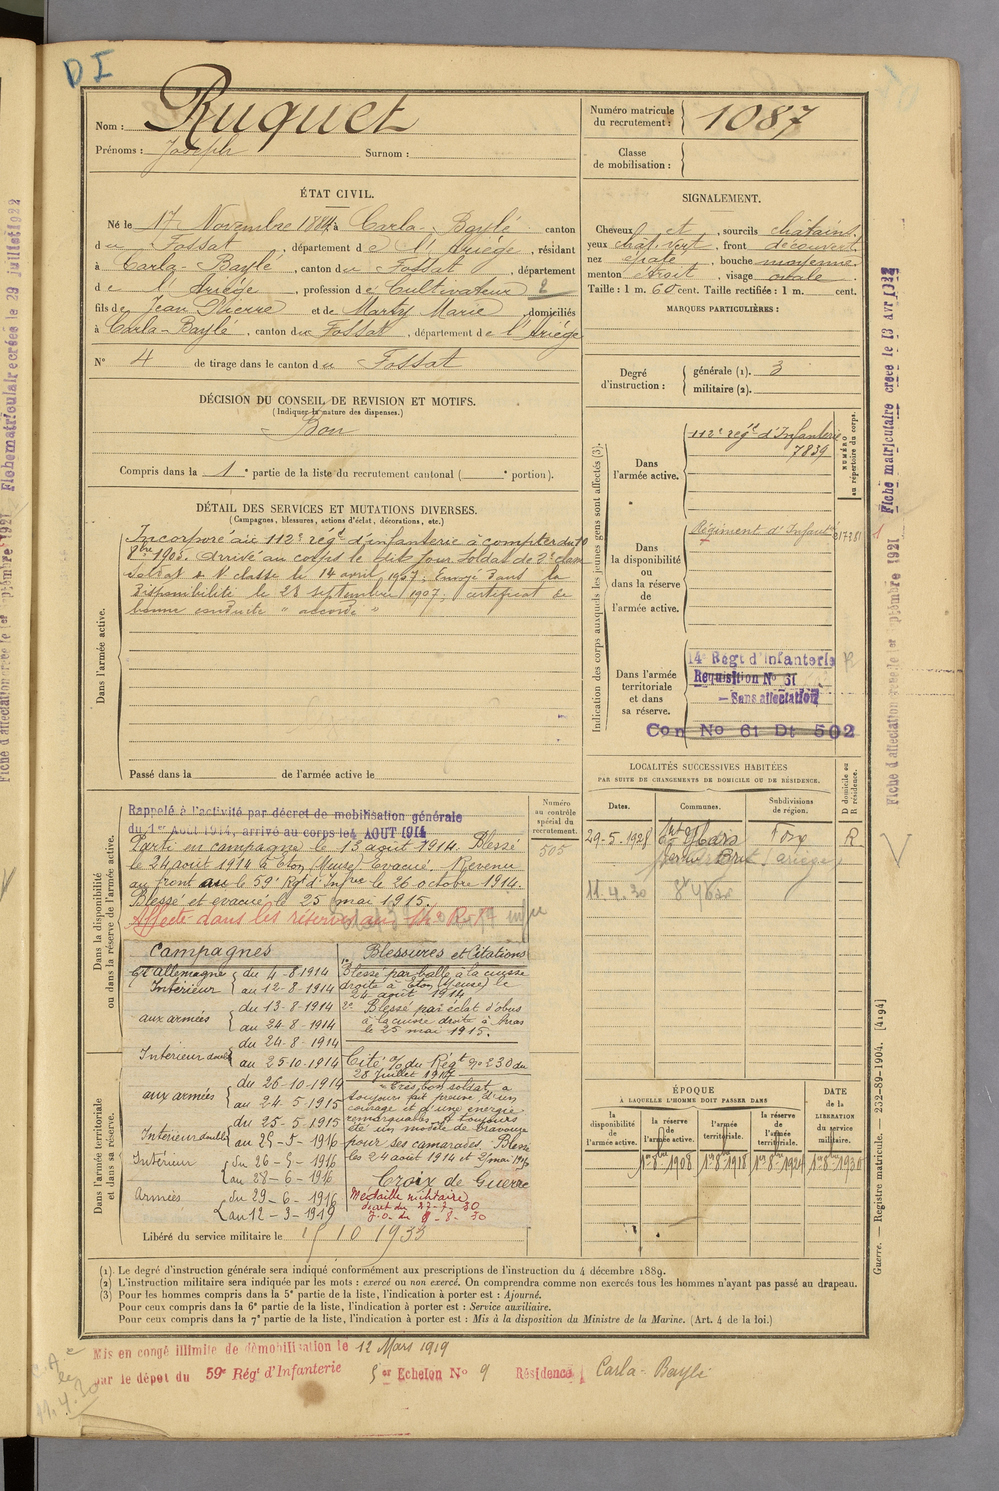 DI
Nom : Ruquet
Prénoms : Joseph Surnom :
Numéro matricule
du recrutement : 1087
Classe
de mobilisation :
ÉTAT CIVIL.
Né le 17 Novembre 1884 à Carla-Baylé canton
du Fossat, département de l'Ariège, résidant
à Carla-Baylé, canton du Fossat, département
de l'Ariège, profession de Cultivateur 2
fils de Jean Pierre et de Marty Marie, domiciliés
à Carla-Baylé, canton du Fossat, département de l'Ariège
N° 4 de tirage dans le canton du Fossat
SIGNALEMENT.
Cheveux et, sourcils châtains.
yeux chât. vert, front découvert
nez épaté, bouche moyenne
menton étroit, visage ovale
Taille : 1 m. 60 cent. Taille rectifiée : 1 m. cent.
MARQUES PARTICULIÈRES :
Degré
d'instruction :
générale (1). 3
militaire (2).
DÉCISION DU CONSEIL DE REVISION ET MOTIFS.
(Indiquer la nature des dispenses.)
Bon
Compris dans la 1e partie de la liste du recrutement cantonal ( e portion).
DÉTAIL DES SERVICES ET MUTATIONS DIVERSES.
(Campagnes, blessures, actions d'éclat, décorations, etc.)
Dans l'armée active.
Incorporé au 112e régt d'infanterie à compter du 10
8bre 1905. Arrivé au corps le dit jour soldat de 2e classe
soldat de 1e classe le 14 avril 1907. Envoyé dans la
disponibilité le 28 septembre 1907, certificat de
bonne conduite " accordé "
Passé dans la de l'armée active le
Indication des corps auxquels les jeunes gens sont affectés (3).
Dans
l'armée active.
112e régt d'Infanterie
7839
NUMÉRO
au répertoire du corps.
Dans
la disponibilité
ou
dans la réserve
de
l'armée active.
Régiment d'Infant
Dans l'armée
territoriale
et dans
sa réserve.
14e Régt d'Infanterie
Requisition No 61
— Sans affectation
Con No 61 Dt 502
LOCALITÉS SUCCESSIVES HABITÉES
PAR SUITE DE CHANGEMENTS DE DOMICILE OU DE RÉSIDENCE.
Dates. Communes. Subdivisions
de région. D domicile ou
R résidence.
29-5-1928 Foix R
11.4.30
Dans la disponibilité
ou dans la réserve de l'armée active.
Numéro
au contrôle
spécial du
recrutement.
505
Rappelé à l'activité par décret de mobilisation générale
du 1er Août 1914, arrivé au corps le 4 AOUT 1914
Parti en campagne le 13 août 1914. Blessé
le 24 août 1914 à Eton (Meuse) Evacué. Revenu
au front au le 59e Rgt d'Infrie le 26 octobre 1914.
Blessé et evacué le 25 mai 1915.
Affecté dans les réserves au 14e R.I
Campagnes
Ct Allemagne
Intérieur du 4-8-1914
au 12-8-1914
aux armées du 13-8-1914
au 24-8-1914
Intérieur double du 24-8-1914
au 25-10-1914
aux armées du 26-10-1914
au 24-5-1915
Intérieur double du 25-5-1915
au 25-5-1916
Intérieur du 26-5-1916
au 28-6-1916
Armées du 29-6-1916
au 12-3-1919
Blessures et Citations
1o Blessé par balle à la cuisse
droite à Eton (Meuse) le
24 août 1914
2o Blessé par éclat d'obus
à la cuisse droite à Arras
le 25 mai 1915.
Cité o/ du Régt No 230 du
28 Juillet 1917
Très bon soldat, a
toujours fait preuve d'un
courage et d'une énergie
remarquables, a toujours
été un modèle de bravoure
pour ses camarades. Blessé
les 24 août 1914 et 25 mai 1915
Croix de Guerre
Médaille militaire
décret du 27-7-30
J.O. du 9-8-30
Dans l'armée territoriale
et dans sa réserve.
Libéré du service militaire le 15 10 1933
ÉPOQUE
À LAQUELLE L'HOMME DOIT PASSER DANS
DATE
de la
LIBÉRATION
du service
militaire.
la
disponibilité
de
l'armée active.
la réserve
de
l'armée active.
l'armée
territoriale.
la réserve
de
l'armée
territoriale.
1er 8bre 1908 1er 8bre 1918 1er 8bre 1924 1er 8bre 1930
(1). Le degré d'instruction générale sera indiqué conformément aux prescriptions de l'instruction du 4 décembre 1889.
(2) L'instruction militaire sera indiquée par les mots : exercé ou non exercé. On comprendra comme non exercés tous les hommes n'ayant pas passé au drapeau.
(3) Pour les hommes compris dans la 5e partie de la liste, l'indication à porter est : Ajourné.
Pour ceux compris dans la 6e partie de la liste, l'indication à porter est : Service auxiliaire.
Pour ceux compris dans la 7e partie de la liste, l'indication à porter est : Mis à la disposition du Ministre de la Marine. (Art. 4 de la loi.)
Mis en congé illimité de démobilisation le 12 Mars 1919
par le dépot du 59e Régt d'Infanterie 5er Echelon No 9 Résidence Carla-Baylé
11.4.30
Guerre. — Registre matricule. — 232-89-1904. [4194]
Fiche matriculaire créée le 13 Avr 1922
Fiche d'affectation créée le 1er septembre 1921
Fiche matriculaire créée le 29 juillet 1922